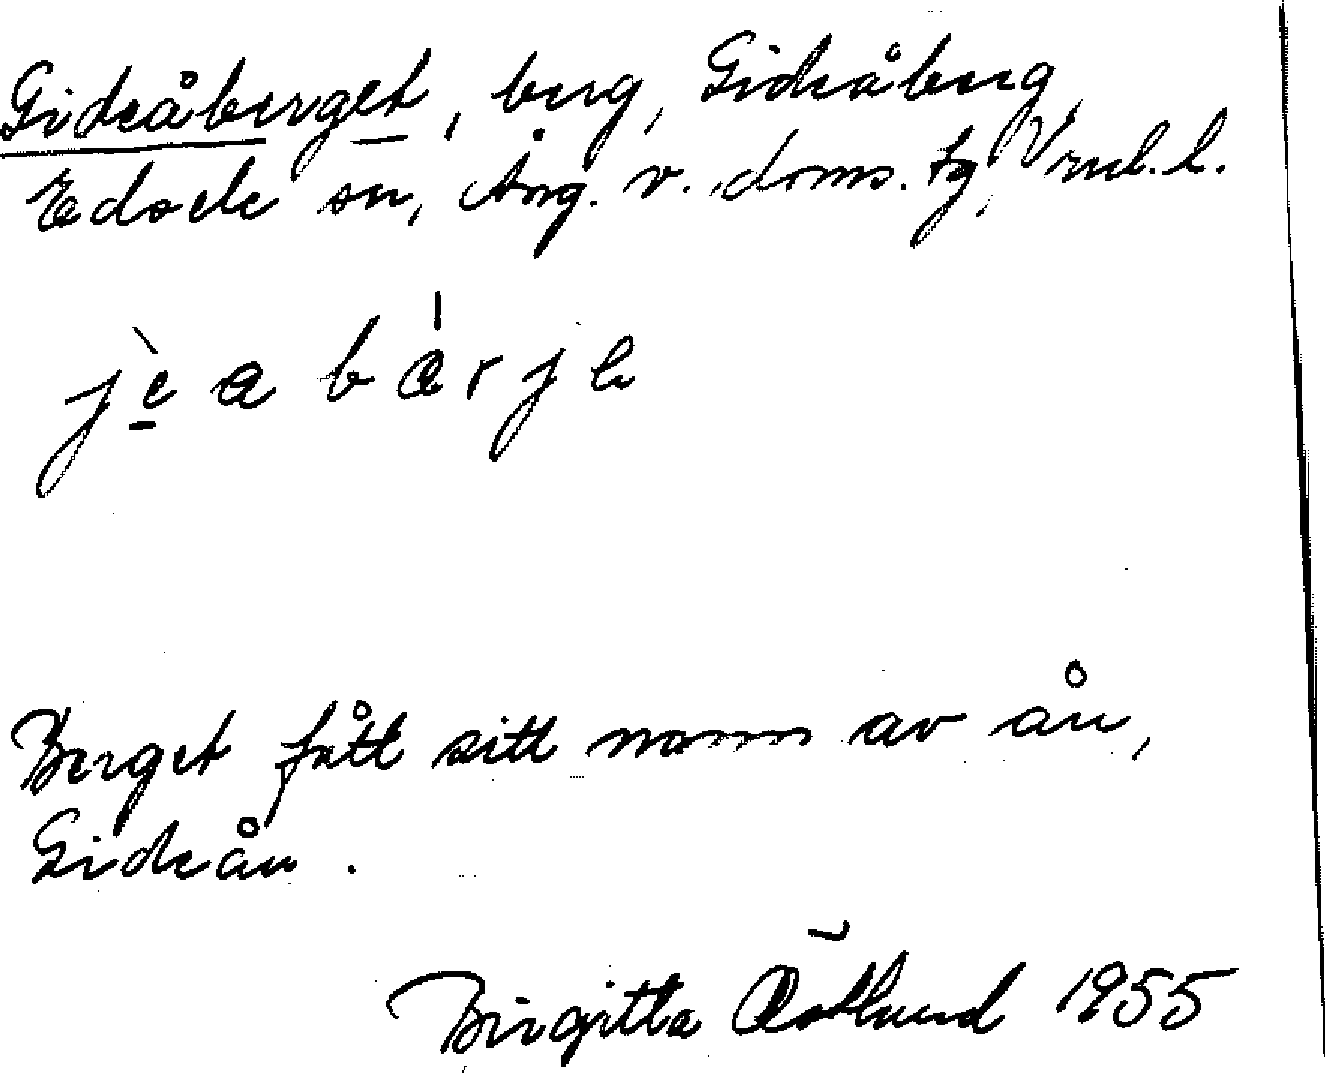 Gideåberget, berg, Gideåberg,
Edsele sn, Ång. v. doms. tg, Vrnl. l.
jè a bærje
Berget fått sitt namn av ån,
Gideån.
Birgitta Östlund 1955